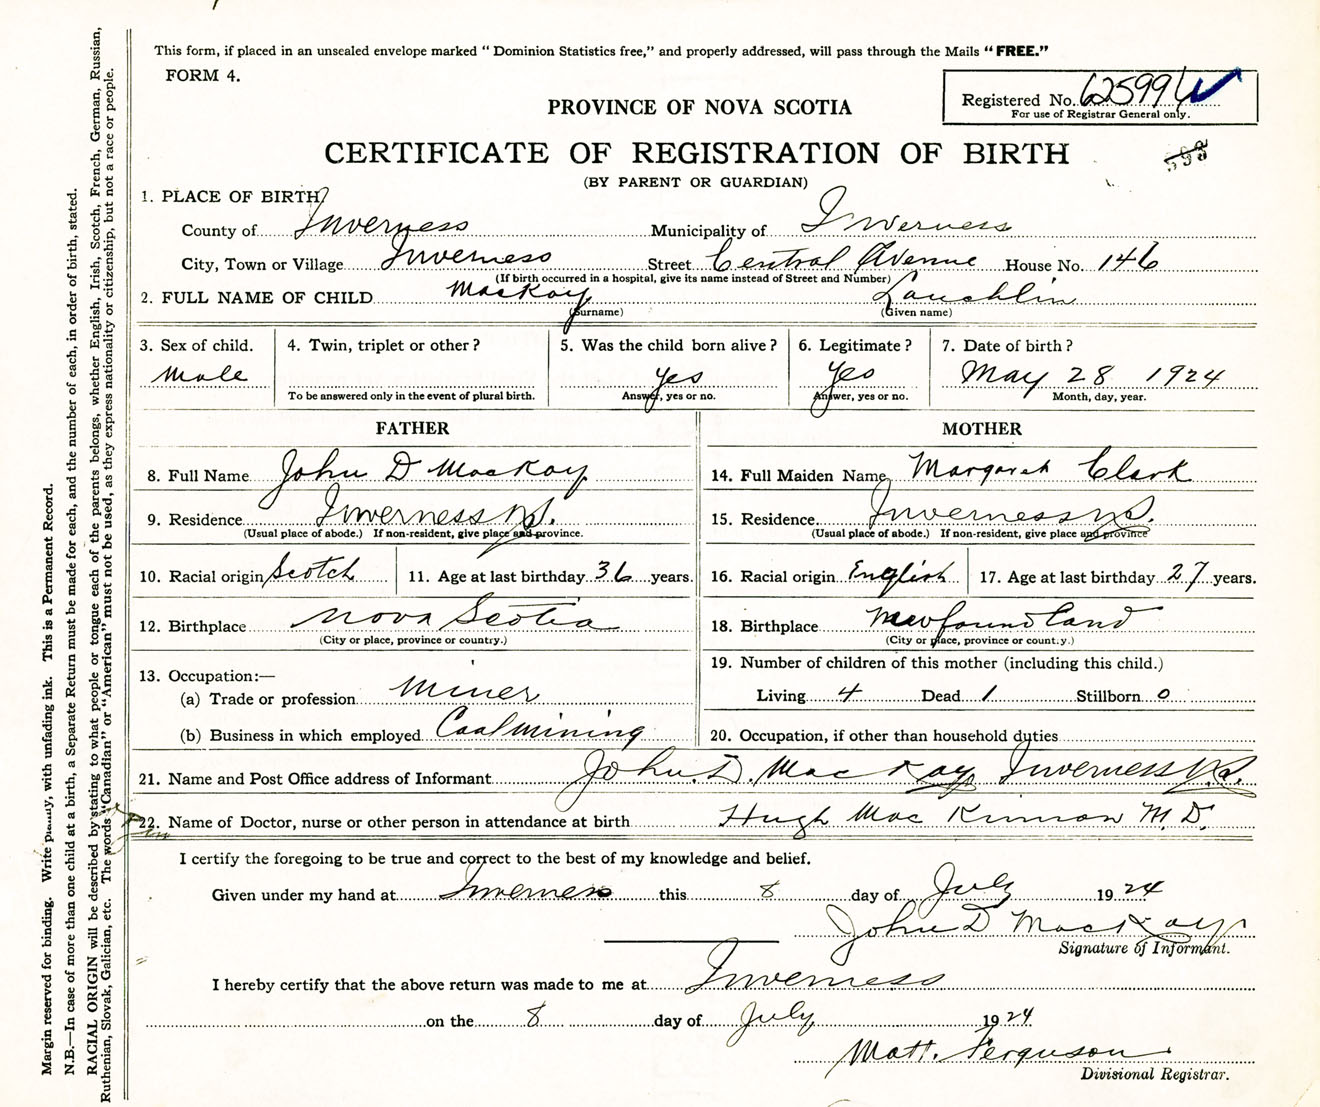 This form, if placed in an unsealed envelope marked "Dominion Statistics free," and properly addressed, will pass through the Mails "FREE."
FORM 4.
Registered No.
For use of Registrar General only.
PROVINCE OF NOVA SCOTIA
CERTIFICATE OF REGISTRATION OF BIRTH
(BY PARENT OR GUARDIAN)
1. PLACE OF BIRTH
County of Inverness Municipality of Inverness
City, Town or Village Inverness Street Central Avenue House No. 146
(If birth occurred in a hospital, give its name instead of Street and Number)
2. FULL NAME OF CHILD MacKay Lauchlin
(Surname) (Given name)
3. Sex of child. 4. Twin, triplet or other? 5. Was the child born alive? 6. Legitimate? 7. Date of birth?
Male Yes Yes May 28 1924
To be answered only in the event of plural birth. Answer, yes or no. Answer, yes or no. Month, day, year.
FATHER MOTHER
8. Full Name John D MacKay 14. Full Maiden Name Margaret Clark
9. Residence Inverness N.S. 15. Residence Inverness N.S.
(Usual place of abode.) If non-resident, give place and province. (Usual place of abode.) If non-resident, give place and province
10. Racial origin Scotch 11. Age at last birthday 36 years. 16. Racial origin English 17. Age at last birthday 27 years.
12. Birthplace Nova Scotia 18. Birthplace Newfoundland
(City or place, province or country.) (City or place, province or country.)
13. Occupation:— 19. Number of children of this mother (including this child.)
(a) Trade or profession Miner Living 4 Dead 1 Stillborn 0
(b) Business in which employed Coalmining 20. Occupation, if other than household duties
21. Name and Post Office address of Informant John D. MacKay Inverness N.S.
22. Name of Doctor, nurse or other person in attendance at birth Hugh MacKinnon M.D.
I certify the foregoing to be true and correct to the best of my knowledge and belief.
Given under my hand at Inverness this 8 day of July 1924
John D MacKay
Signature of Informant.
I hereby certify that the above return was made to me at Inverness
on the 8 day of July 1924
Matt. Ferguson
Divisional Registrar.
Margin reserved for binding. Write plainly, with unfading ink. This is a Permanent Record.
N.B.—In case of more than one child at a birth, a Separate Return must be made for each, and the number of each, in order of birth, stated.
RACIAL ORIGIN will be described by stating to what people or tongue each of the parents belongs, whether English, Irish, Scotch, French, German, Russian,
Ruthenian, Slovak, Galician, etc. The words "Canadian" or "American" must not be used, as they express nationality or citizenship, but not a race or people.